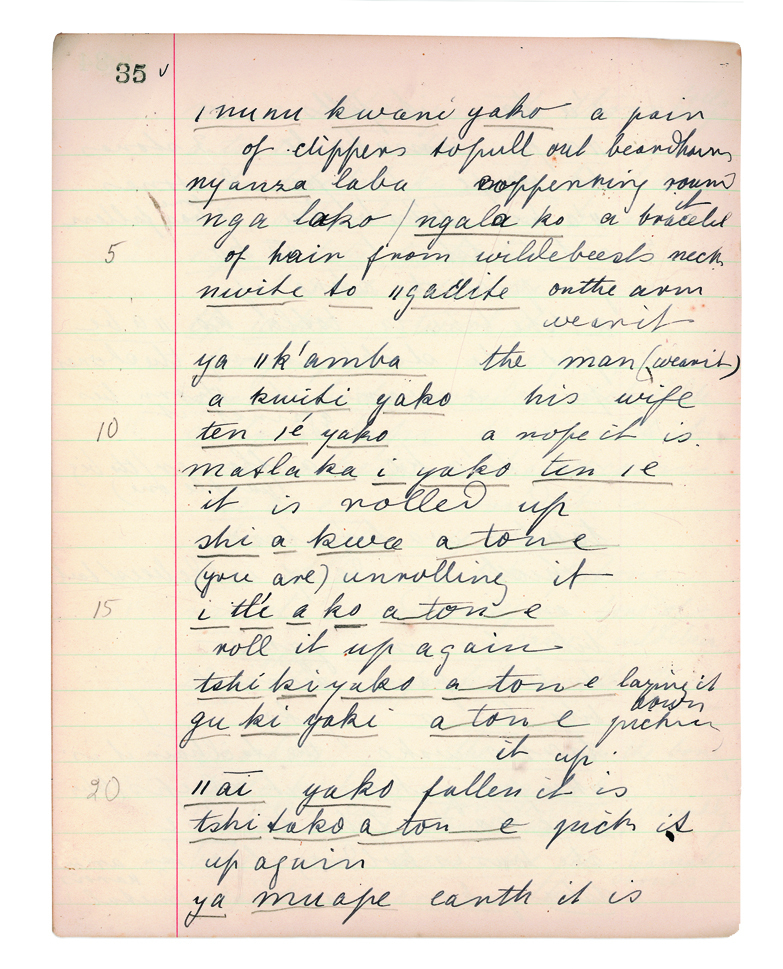 35 ✓
ı nunu kwani yako a pair
of clippers to pull out beardhairs
nyanza laba round
nga lako / ngala ko a bracelet it
5 of hair from wildebeests neck
nwite to ǁgallite on the arm
wear it
ya ǁk'amba the man (wear it)
a kwiti yako his wife
10 ten ıé yako a rope it is.
matlaka i yako ten ıe
it is rolled up
shi a kwa a ton e
(you are) unrolling it
15 i tlé a ko a ton e
roll it up again
tshi ki yako a ton e laying it
down
gu ki yaki a ton e picking
it up.
20 ǁāi yako fallen it is
tshi tako a ton e pick it
up again
ya muape earth it is